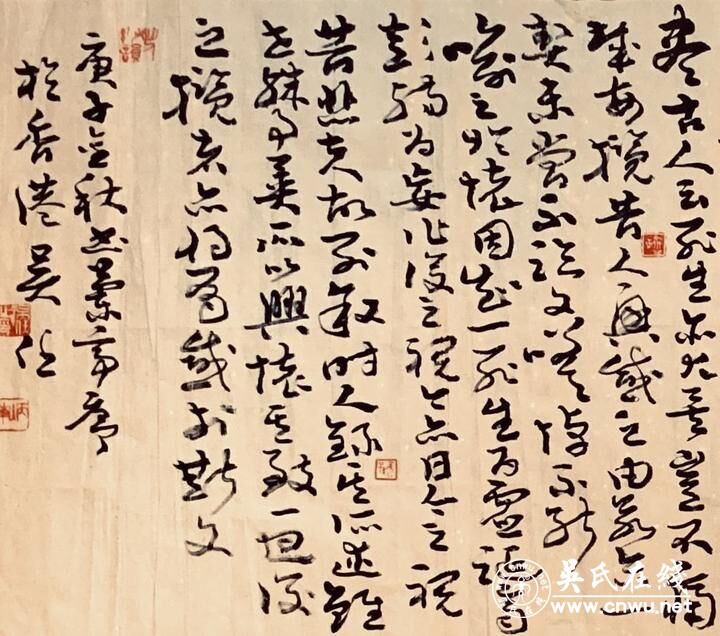 盡古人云死生亦大矣豈不痛
哉每攬昔人興感之由若合一
契未嘗不臨文嗟悼不能
喻之於懷固知一死生為虛誕齊
彭殤為妄作後之視今亦由今之視
昔悲夫故列叙時人錄其所述雖
世殊事異所以興懷其致一也後
之攬者亦將有感於斯文
庚子金秋書蘭亭序
於香港吳任
吳氏在线
www.cnwu.net